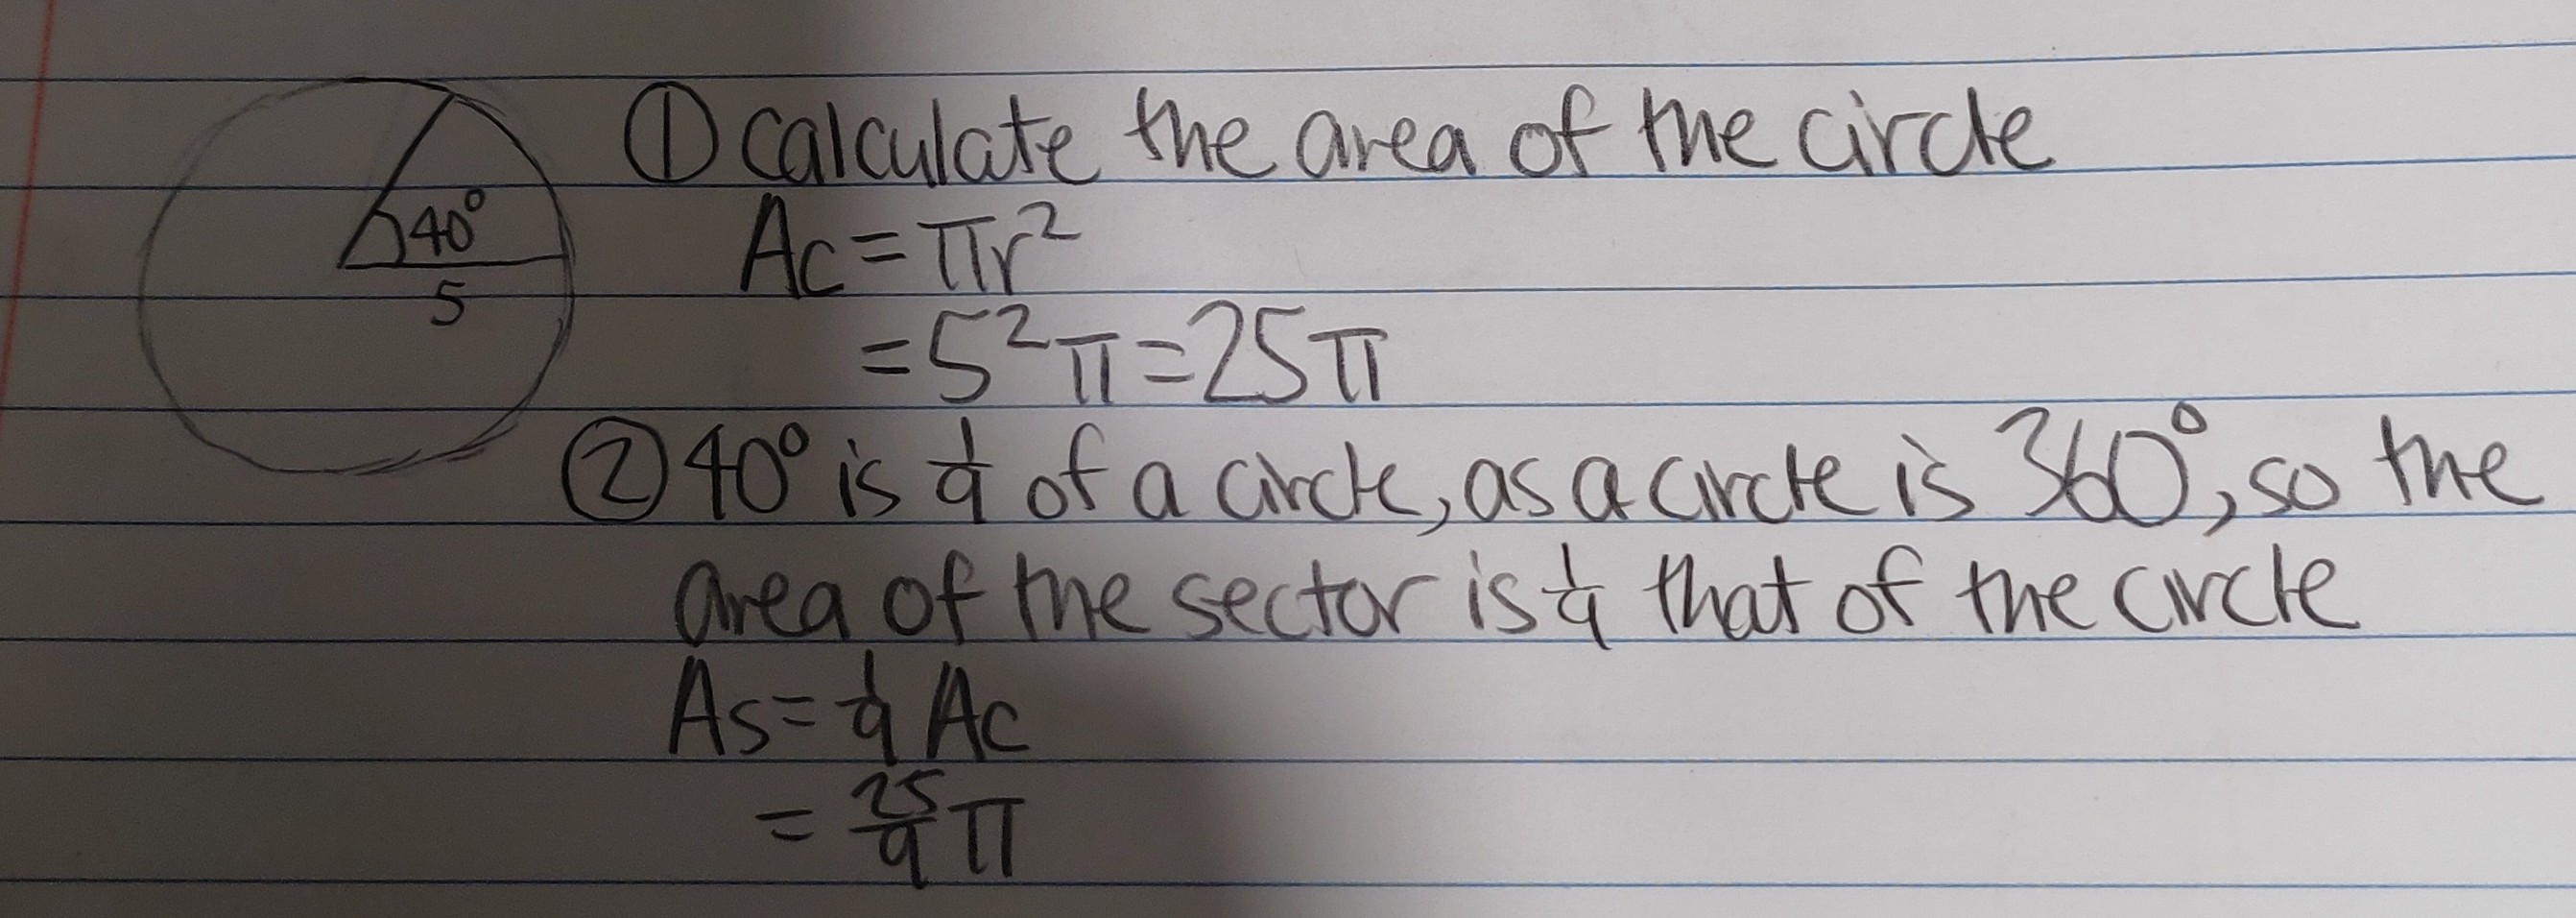 40°
5
① Calculate the area of the circle
Ac = πr²
= 5²π = 25π
② 40° is 1/9 of a circle, as a circle is 360°, so the
area of the sector is 1/9 that of the circle
As = 1/9 Ac
= 25/9 π